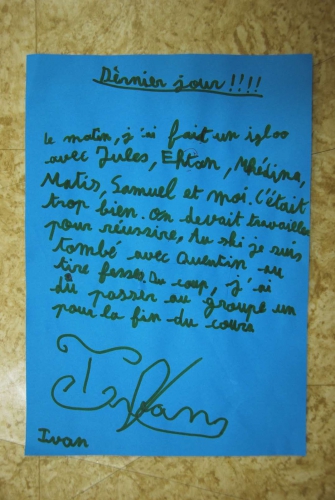 Dèrnier jour !!!!
Le matin, j'ai fait un igloo
avec Jules, Ehtan, Mhédina,
Matis, Samuel et moi. C'était
trop bien. On devait travailler
pour réussire, Au ski je suis
tombé avec Quentin au
tire fesses Du coup, j'ai
dû passer au groupe un
pour la fin du cours
Ivan